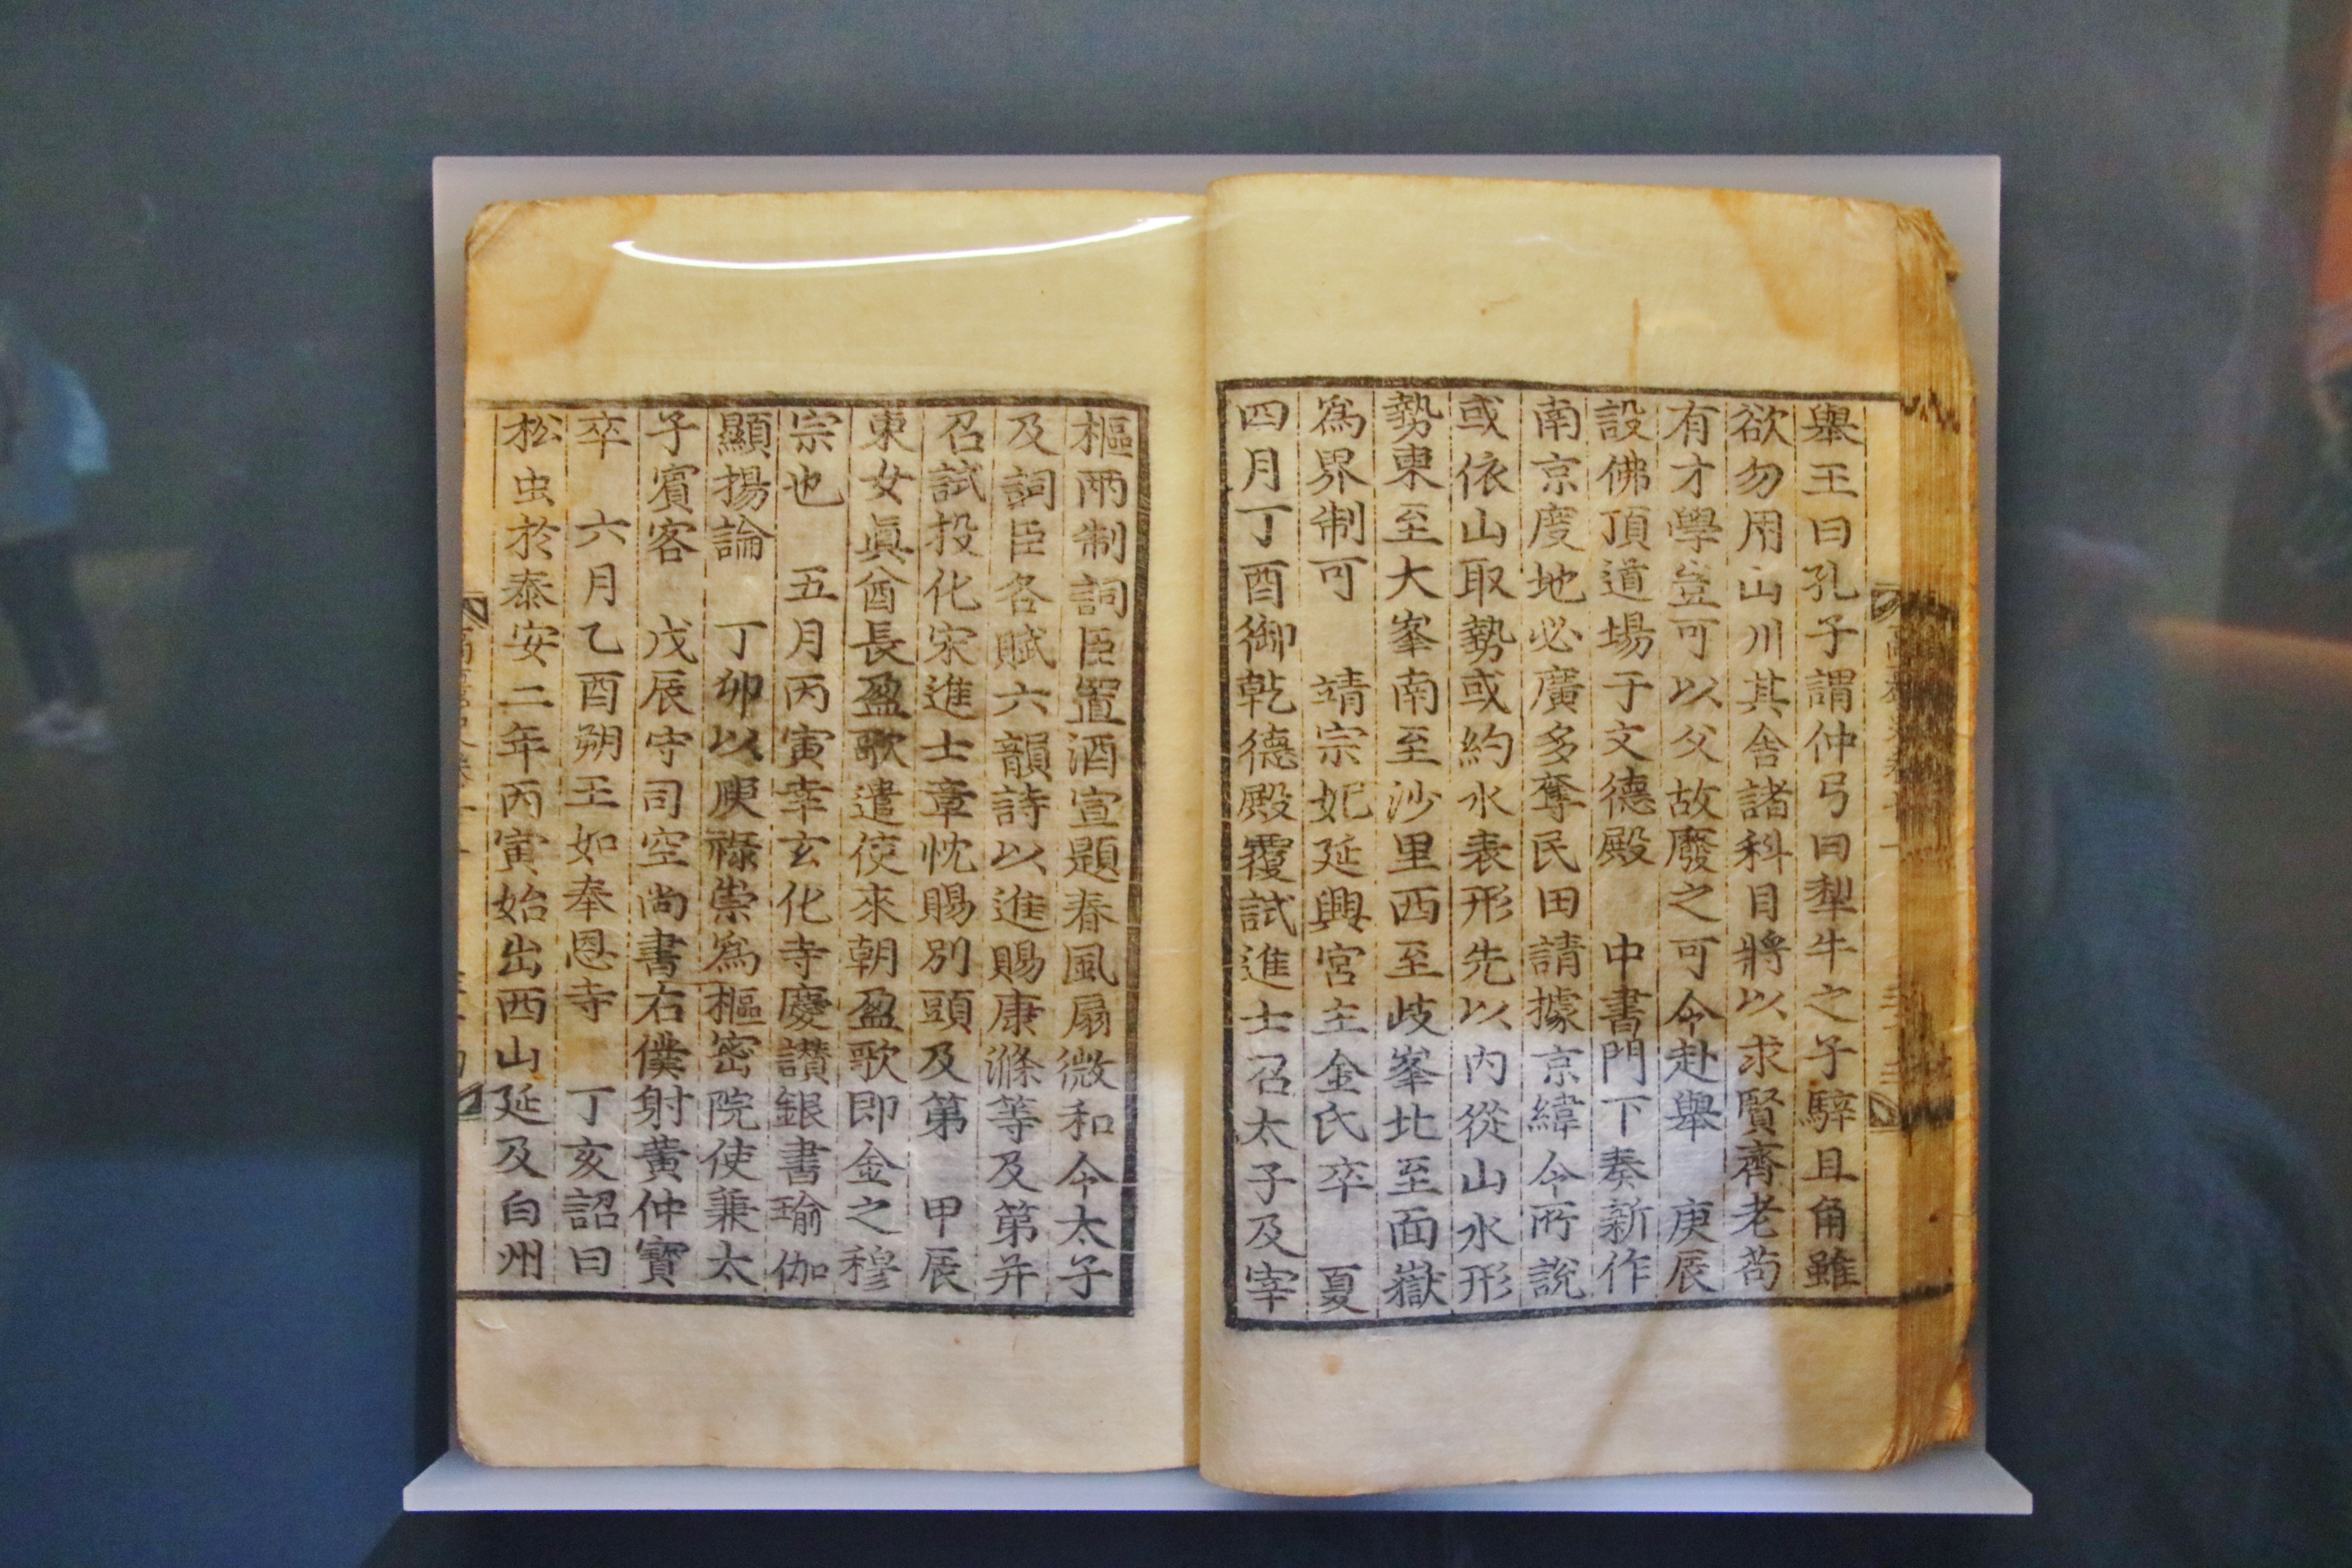 舉王曰孔子謂仲弓曰犁牛之子騂且角雖
欲勿用山川其舍諸科目將以求賢齊老苟
有才學豈可以父故廢之可令赴舉 庚辰
設佛頂道場于文德殿 中書門下奏新作
南京度地必廣多奪民田請據京緯令所說
或依山取勢或約水表形先以內從山水形
勢東至大峯南至沙里西至岐峯北至面嶽
爲界制可 靖宗妃延興宮主金氏卒 夏
四月丁酉御乾德殿覆試進士召太子及宰
樞兩制詞臣置酒宣題春風扇微和令太子
及詞臣各賦六韻詩以進賜康滌等及第并
召試投化宋進士章忱賜別頭及第 甲辰
東女眞酋長盈歌遣使來朝盈歌即金之穆
宗也 五月丙寅幸玄化寺慶讃銀書瑜伽
顯揚論 丁卯以庾祿崇爲樞密院使兼太
子賓客 戊辰守司空尙書右僕射黃仲寶
卒 六月乙酉朔王如奉恩寺 丁亥詔曰
松虫於泰安二年丙寅始出西山延及白州